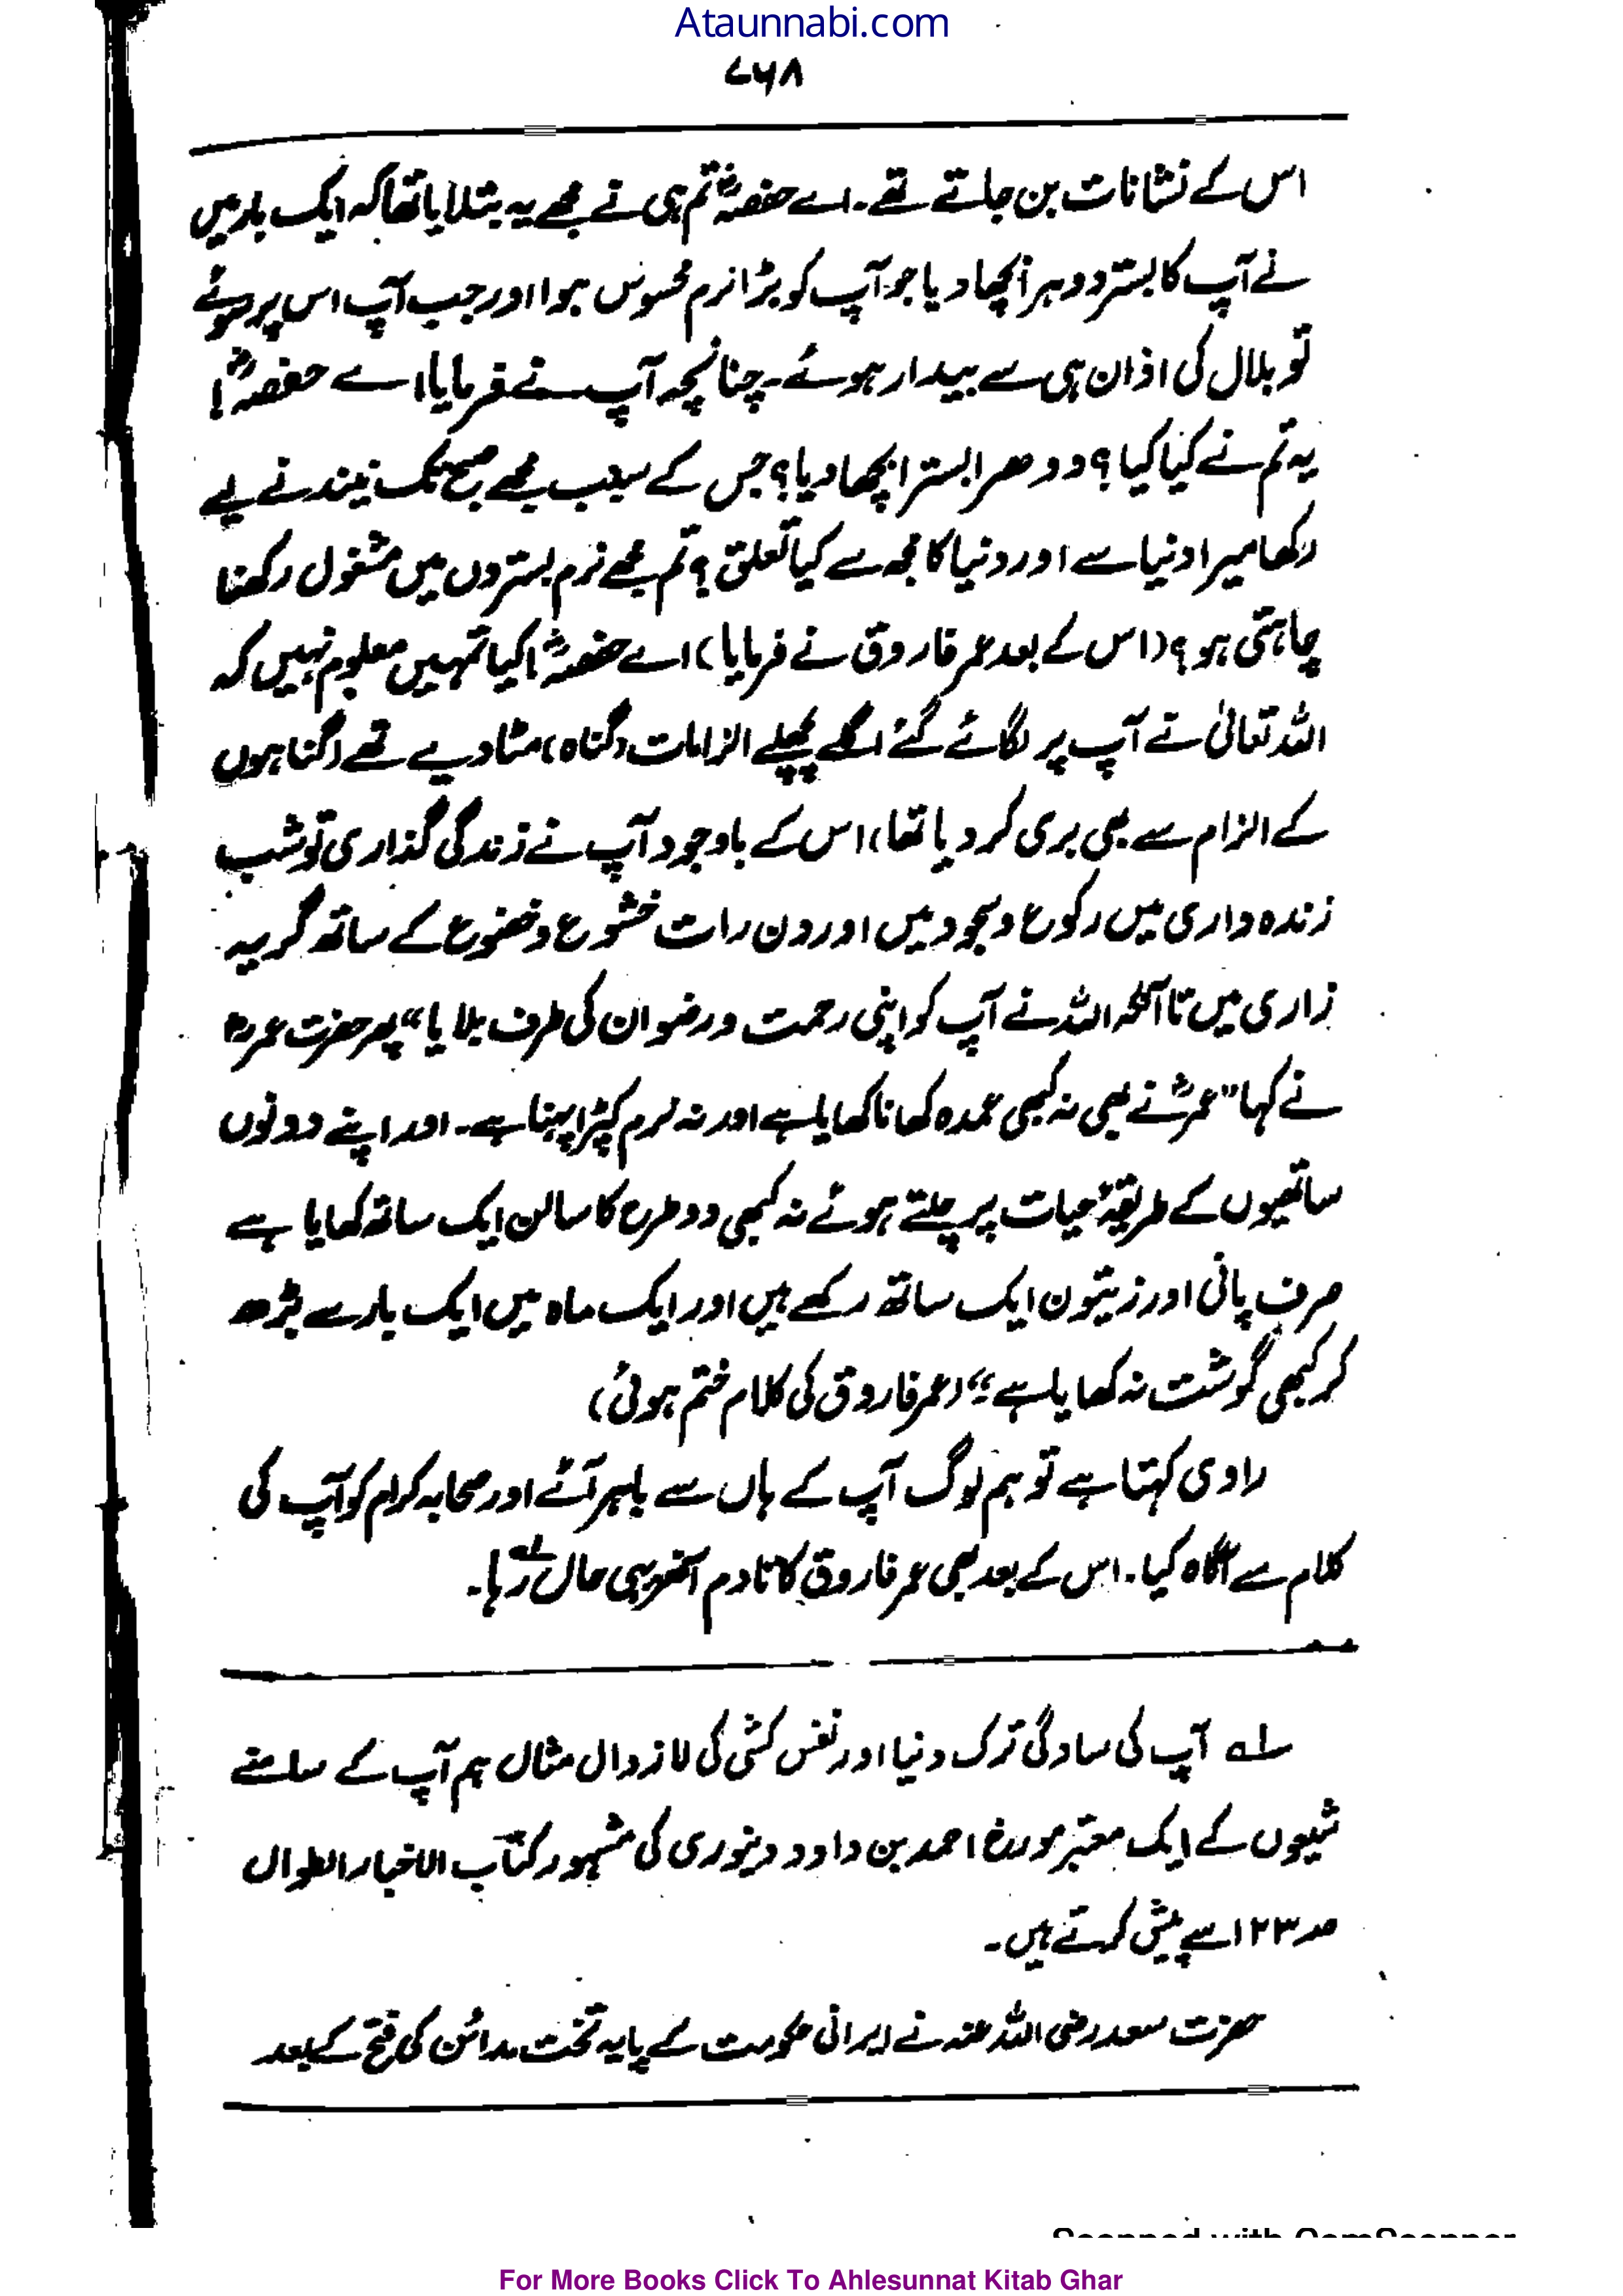 Ataunnabi.com
۷۶۸
اس کے نشانات بن جاتے تھے۔ اے حفصہؓ تم ہی نے مجھے یہ بتلایا تھا کہ ایک بار میں
نے آپ کا بستر دوہرا بچھا دیا جو آپ کو بڑا نرم محسوس ہوا اور جب آپ اس پر سوئے
تو بلال کی اذان ہی سے بیدار ہوئے۔ چنانچہ آپ نے فرمایا، اے حفصہؓ!
یہ تم نے کیا کیا؟ دوھرا بسترا بچھا دیا؟ جس کے سبب مجھے صبح تک نیند نے لیے
رکھا میرا دنیا سے اور دنیا کا مجھ سے کیا تعلق؟ تم مجھے نرم بستروں میں مشغول رکھنا
چاہتی ہو؟ (اس کے بعد عمر فاروق نے فرمایا) اے حفصہؓ! کیا تمہیں معلوم نہیں کہ
اللہ تعالیٰ نے آپ پر لگائے گئے اگلے پچھلے الزامات (گناہ) مٹا دیے تھے (گناہوں
کے الزام سے بھی بری کر دیا تھا) اس کے باوجود آپ نے زندگی گذاری تو شب
زندہ داری میں رکوع و سجود میں اور دن رات خشوع و خضوع کے ساتھ گریہ
زاری میں تا آنکہ اللہ نے آپ کو اپنی رحمت و رضوان کی طرف بلا یا“ پھر حضرت عمرؓ
نے کہا ”عمرؓ نے بھی نہ کبھی عمدہ کھانا کھایا ہے اور نہ نرم کپڑا پہنا ہے۔ اور اپنے دونوں
ساتھیوں کے طریقۂ حیات پر چلتے ہوئے نہ کبھی دو طرح کا سالن ایک ساتھ کھایا ہے
صرف پانی اور زیتون ایک ساتھ رکھے ہیں اور ایک ماہ میں ایک بار سے بڑھ
کر کبھی گوشت نہ کھایا ہے“ (عمر فاروق کی کلام ختم ہوئی)
راوی کہتا ہے تو ہم لوگ آپ کے ہاں سے باہر آئے اور صحابہ کرام کو آپ کی
کلام سے آگاہ کیا۔ اس کے بعد بھی عمر فاروق کا تا دم آخر یہی حال رہا۔ لہ
لہ آپ کی سادگی ترک دنیا اور نفس کشی کی لازوال مثال ہم آپ کے سامنے
شیعوں کے ایک معتبر مورخ احمد بن داود دینوری کی مشہور کتاب الاخبار الطوال
صد ۱۲۳ سے پیش کرتے ہیں۔
حضرت سعد رضی اللہ عنہ نے ایرانی حکومت کے پایہ تخت مدائن کی فتح کے بعد
Scanned with CamScanner
For More Books Click To Ahlesunnat Kitab Ghar